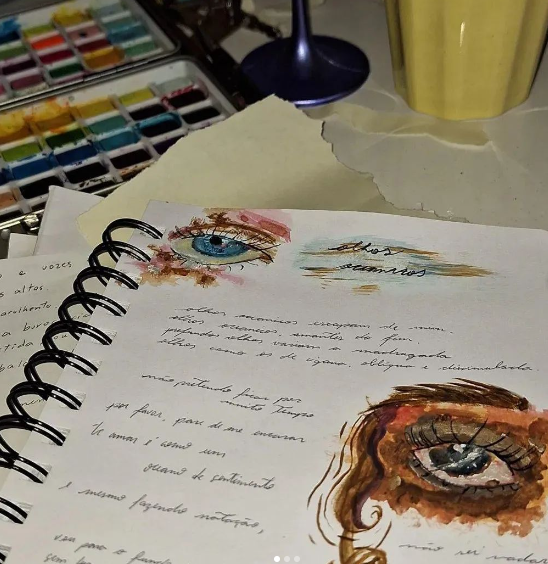 e vozes
altos
olhos
oceanicos
olhos oceanicos escapam de mim
olhos oceanicos, amantes do fim,
profundos olhos vazam a madrugada
olhos como os de cigana, oblíqua e dissimulada.
não pretendo ficar por
muito tempo
por favor, pare de me encarar
te amar é como um
oceano de sentimento
e mesmo fazendo natação,
vou para o fundo
sem
não sei nadar